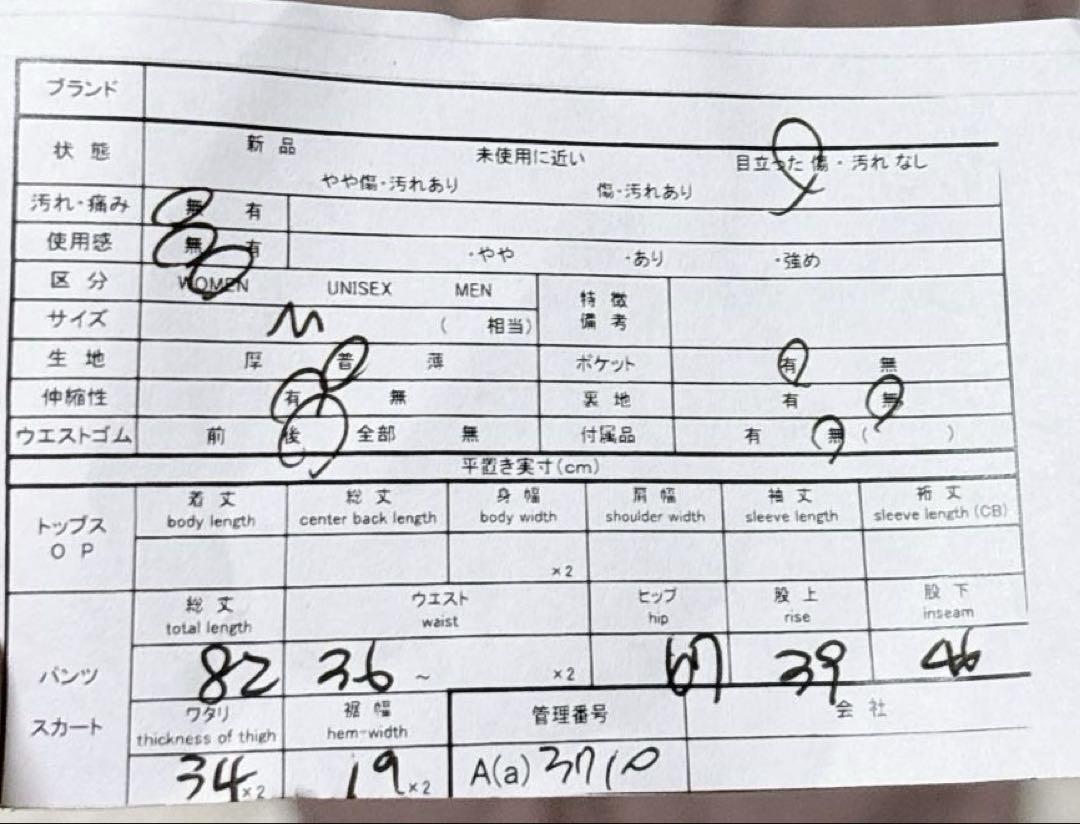 ブランド
状態 新品 未使用に近い 目立った傷・汚れなし
やや傷・汚れあり 傷・汚れあり
汚れ・痛み 無 有
使用感 無 有 ・やや ・あり ・強め
区分 WOMEN UNISEX MEN 特徴
備考
サイズ M ( 相当)
生地 厚 普 薄 ポケット 有 無
伸縮性 有 無 裏地 有 無
ウエストゴム 前 後 全部 無 付属品 有 無 ( )
平置き実寸(cm)
トップス
OP
着丈 総丈 身幅 肩幅 袖丈 裄丈
body length center back length body width shoulder width sleeve length sleeve length (CB)
×2
パンツ
スカート
総丈 ウエスト ヒップ 股上 股下
total length waist hip rise inseam
82 36 ~ ×2 39 46
ワタリ 裾幅 管理番号 会社
thickness of thigh hem-width
34 ×2 19 ×2 A(a) 3710